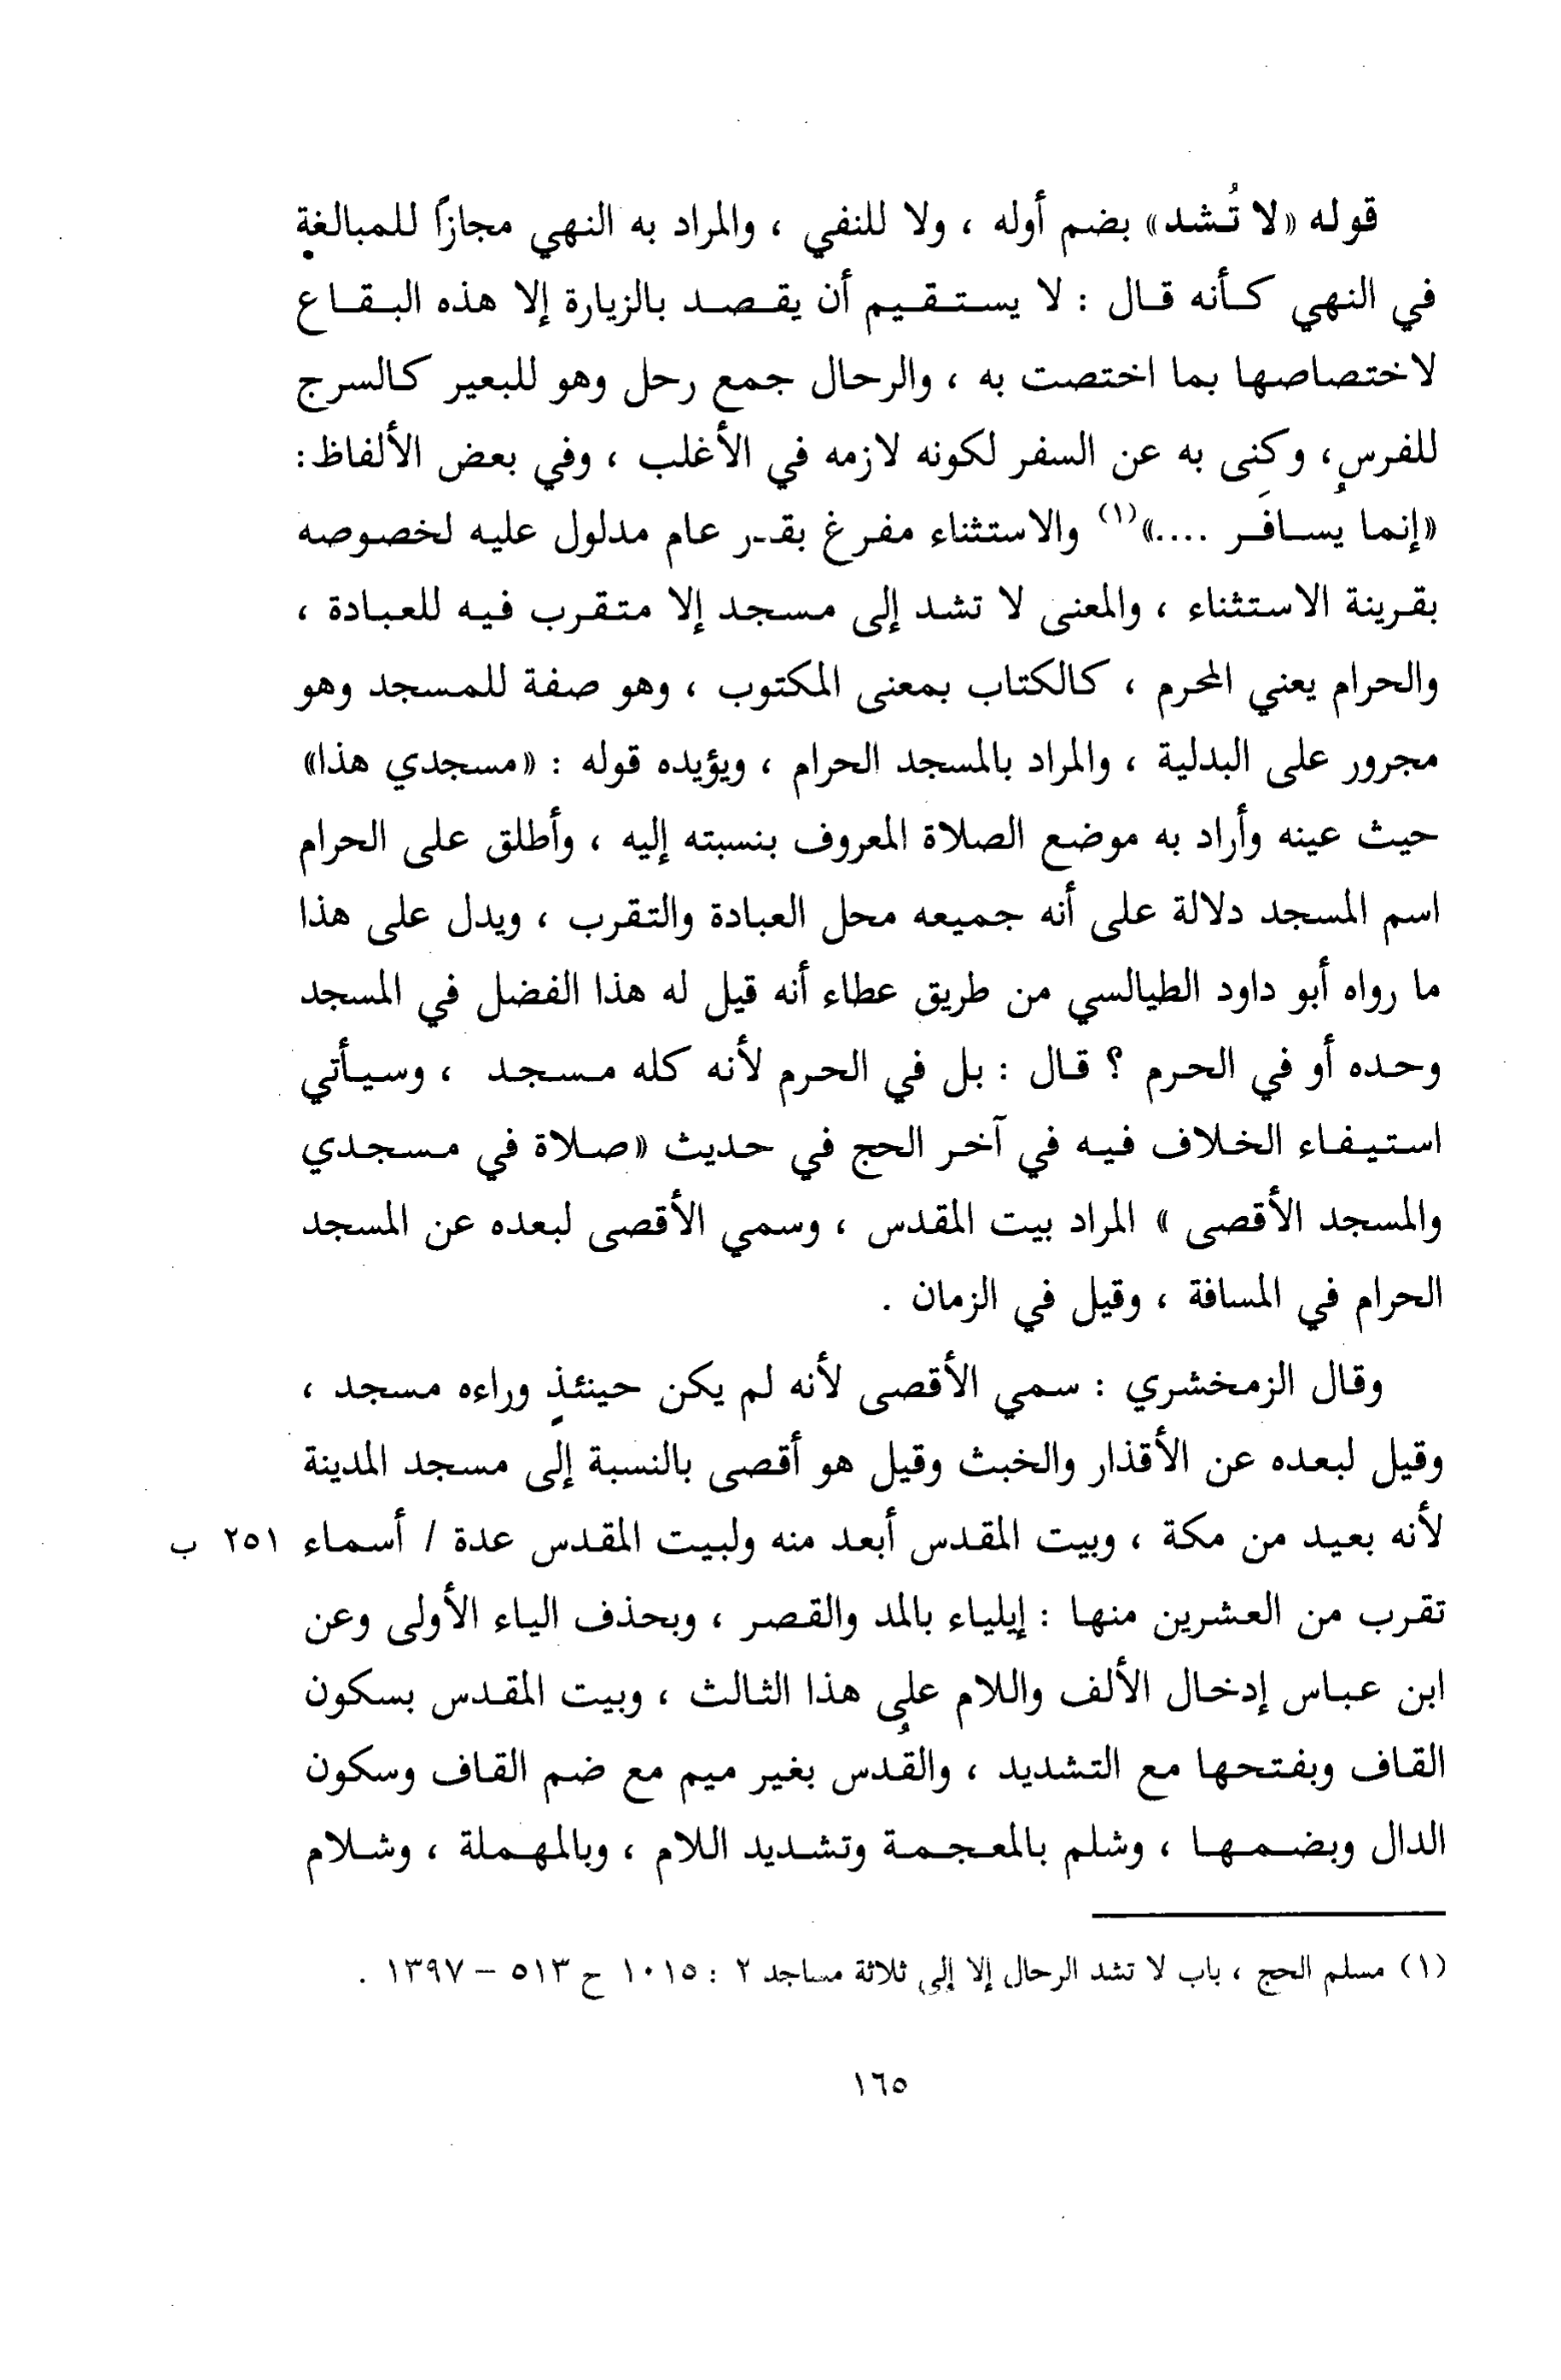 قوله «لا تُشد» بضم أوله ، ولا للنفي ، والمراد به النهي مجازاً للمبالغة
في النهي كأنه قال : لا يستقيم أن يقصد بالزيارة إلا هذه البقاع
لاختصاصها بما اختصت به ، والرحال جمع رحل وهو للبعير كالسرج
للفرس، وكنى به عن السفر لكونه لازمه في الأغلب ، وفي بعض الألفاظ:
«إنما يُسافَر ....»(١) والاستثناء مفرغ بقـر عام مدلول عليه لخصوصه
بقرينة الاستثناء ، والمعنى لا تشد إلى مسجد إلا متقرب فيه للعبادة ،
والحرام يعني المحرم ، كالكتاب بمعنى المكتوب ، وهو صفة للمسجد وهو
مجرور على البدلية ، والمراد بالمسجد الحرام ، ويؤيده قوله : «مسجدي هذا»
حيث عينه وأراد به موضع الصلاة المعروف بنسبته إليه ، وأطلق على الحرام
اسم المسجد دلالة على أنه جميعه محل العبادة والتقرب ، ويدل على هذا
ما رواه أبو داود الطيالسي من طريق عطاء أنه قيل له هذا الفضل في المسجد
وحده أو في الحرم ؟ قال : بل في الحرم لأنه كله مسجد ، وسيأتي
استيفاء الخلاف فيه في آخر الحج في حديث «صلاة في مسجدي
والمسجد الأقصى » المراد بيت المقدس ، وسمي الأقصى لبعده عن المسجد
الحرام في المسافة ، وقيل في الزمان .
وقال الزمخشري : سمي الأقصى لأنه لم يكن حينئذٍ وراءه مسجد ،
وقيل لبعده عن الأقذار والخبث وقيل هو أقصى بالنسبة إلى مسجد المدينة
لأنه بعيد من مكة ، وبيت المقدس أبعد منه ولبيت المقدس عدة / أسماء ٢٥١ ب
تقرب من العشرين منها : إيلياء بالمد والقصر ، وبحذف الياء الأولى وعن
ابن عباس إدخال الألف واللام على هذا الثالث ، وبيت المقدس بسكون
القاف وبفتحها مع التشديد ، والقُدس بغير ميم مع ضم القاف وسكون
الدال وبضمها ، وشلم بالمعجمة وتشديد اللام ، وبالمهملة ، وشلام
(١) مسلم الحج ، باب لا تشد الرحال إلا إلى ثلاثة مساجد ٢ : ١٠١٥ ح ٥١٣ – ١٣٩٧ .
١٦٥